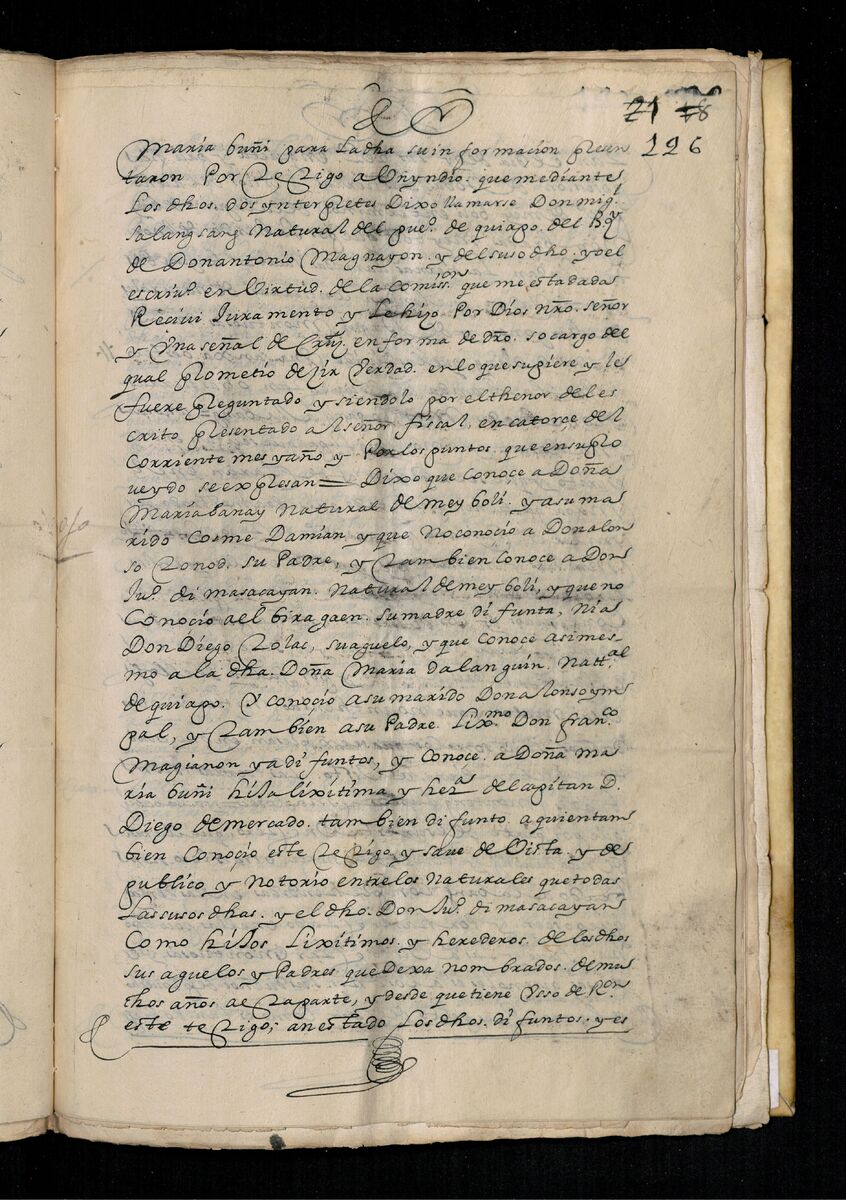 21 78
126
María buñi para la dha su in formaçíon presen
taron Por testigo a Un yndio. que mediante
Los dhos. dos ynterpletes Dixo llamarse Don mig.l
salangsang Natural del pue.o de quiapo. del B.y
de Don antonío Magnayon. y del suso dho. yo el
escriu.o en Virtud. de la Comiss.on que me esta dada
Reciui Juramento y Le hizo Por Dios Nro. señor
y Vna señal de Cruz. en forma de dro. so cargo del
qual plometio dezir Verdad. en lo que supiere y les
fuere pleguntado y siendolo por el thenor del es
crito plesentado al señor fiscal, en catorce del
Corriente mes y año y Por los puntos. que en su plo
ueydo se explesan = Dixo que Conoçe a Doña
María banay Natural de mey bolí. y a su ma
rido Cosme Damian y que No conoçio a Don alon
so tonod. su Padre, y tam bien Conoce a Don
Ju.o dimasacayan. Natural de mey bolí, y que no
Conoçio a el biragaen. su madre di funta, ni a
Don Diego tolac, su aguelo, y que Conoce asimes-
mo a la dha. Doña María dalanguin. Natt.al
de quiapo. Y conoçio a su marido Don alonso ym
pal, y tam bien a su Padre Lix.mo Don fran.co
Magianon ya di funtos, y Conoce. a Doña ma
ría buñi hija lixitima y her.a del capitan D.
Diego de mercado. tam bien di funto a quien tam
bien Conoçio este testigo y saue de Vista y de
publico y Notorio entre los Naturales que todas
Las suso dhas. y el dho. Don Ju.o dimasacayan
Como hijos Lixitimos. y herederos. de los dhos
sus aguelos y Padres que dexa nom brados. de mu
chos años a esta parte, y desde que tiene Vsso de R.on
este testigo; an estado Los dhos. di funtos. y es